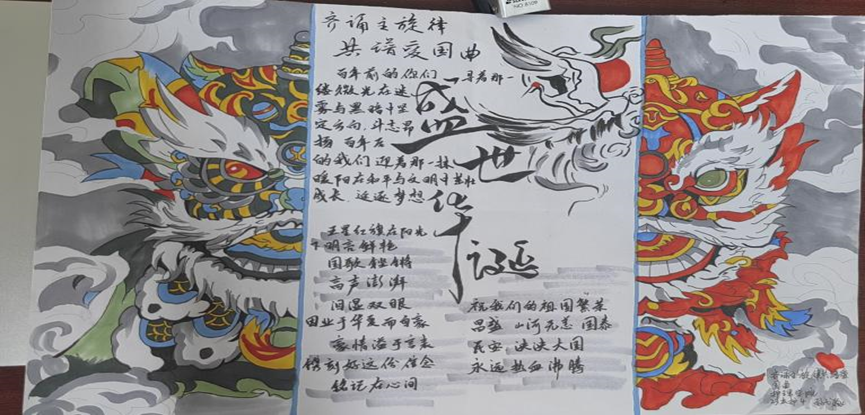 齐诵主旋律
共谱爱国曲
百年前的你们 寻着那一
缕微光在迷
雾与黑暗中坚
定方向,斗志昂
扬 百年后
的我们迎着那一抹
暖阳在和平与文明中茁壮
成长 追逐梦想
盛世华诞
五星红旗在阳光
下明亮鲜艳
国歌铿锵
高声澎湃
泪湿双眼
因生于华夏而自豪
豪情溢于言表
镌刻好这份信念
铭记在心间
祝我们的祖国繁荣
昌盛 山河无恙 国泰
民安 泱泱大国
永远热血沸腾